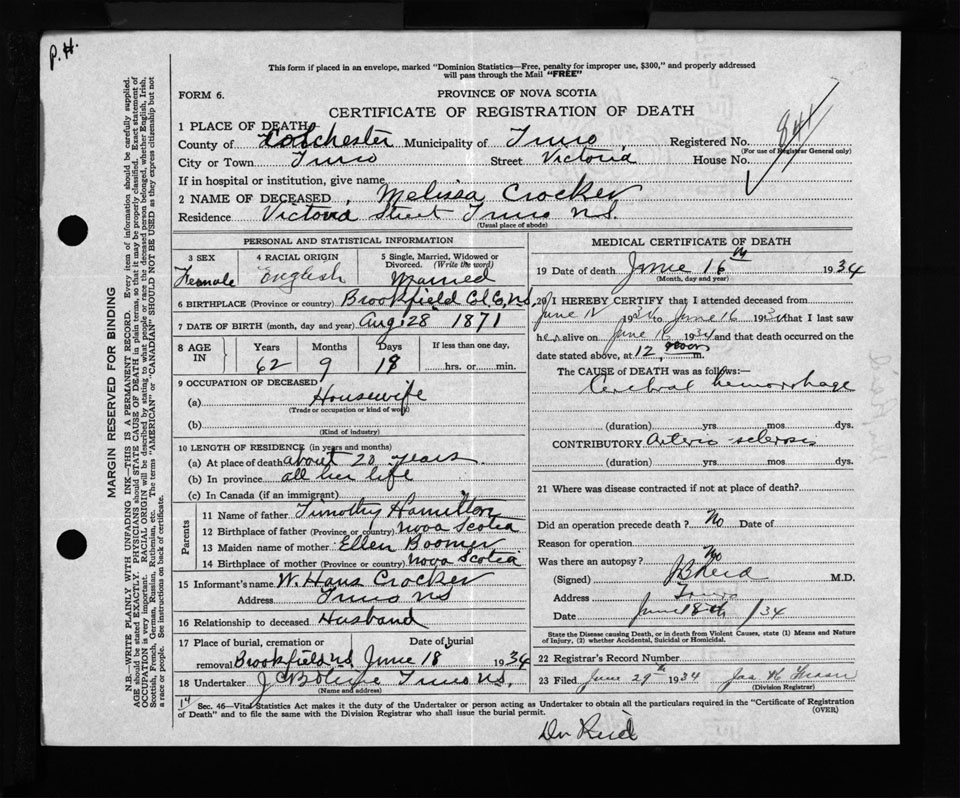 P.H.
This form if placed in an envelope, marked "Dominion Statistics—Free, penalty for improper use, $300," and properly addressed
will pass through the Mail "FREE"
FORM 6.
PROVINCE OF NOVA SCOTIA
CERTIFICATE OF REGISTRATION OF DEATH
1 PLACE OF DEATH
County of Colchester Municipality of Truro Registered No. 841
(For use of Registrar General only)
City or Town Truro Street Victoria House No.
If in hospital or institution, give name
2 NAME OF DECEASED Melissa Crocker
Residence Victoria Street Truro N.S.
(Usual place of abode)
PERSONAL AND STATISTICAL INFORMATION
3 SEX Female
4 RACIAL ORIGIN English
5 Single, Married, Widowed or Divorced. (Write the word) Married
6 BIRTHPLACE (Province or country) Brookfield Col. Co. N.S.
7 DATE OF BIRTH (month, day and year) Aug. 28 1871
8 AGE IN Years Months Days If less than one day,
62 9 18 hrs. or min.
9 OCCUPATION OF DECEASED
(a) Housewife
(Trade or occupation or kind of work)
(b)
(Kind of industry)
10 LENGTH OF RESIDENCE (in years and months)
(a) At place of death about 20 years
(b) In province all her life
(c) In Canada (if an immigrant)
Parents
11 Name of father Timothy Hamilton
12 Birthplace of father (Province or country) Nova Scotia
13 Maiden name of mother Ellen Boomer
14 Birthplace of mother (Province or country) Nova Scotia
15 Informant's name W. Hans Crocker
Address Truro NS
16 Relationship to deceased Husband
17 Place of burial, cremation or Date of burial
removal Brookfield N.S. June 18 1934
18 Undertaker Truro N.S.
(Name and address)
MEDICAL CERTIFICATE OF DEATH
19 Date of death June 16th 1934
(Month, day and year)
20 I HEREBY CERTIFY that I attended deceased from
June 12 1934 to June 16 1934 that I last saw
her alive on June 16 1934 and that death occurred on the
date stated above, at 12 noon m.
The CAUSE of DEATH was as follows:—
Cerebral hemorrhage
(duration) yrs. mos. dys.
CONTRIBUTORY Arterio sclerosis
(duration) yrs. mos. dys.
21 Where was disease contracted if not at place of death?
Did an operation precede death? No Date of
Reason for operation
Was there an autopsy? No
(Signed) J B Reid M.D.
Address Truro
Date June 18th /34
State the Disease causing Death, or in death from Violent Causes, state (1) Means and Nature
of Injury, (2) whether Accidental, Suicidal or Homicidal.
22 Registrar's Record Number
23 Filed June 29th 1934 Jas
(Division Registrar)
14
Sec. 46—Vital Statistics Act makes it the duty of the Undertaker or person acting as Undertaker to obtain all the particulars required in the "Certificate of Registration
of Death" and to file the same with the Division Registrar who shall issue the burial permit.
(OVER)
Dr Reid
MARGIN RESERVED FOR BINDING
N.B.—WRITE PLAINLY WITH UNFADING INK—THIS IS A PERMANENT RECORD. Every item of information should be carefully supplied.
AGE should be stated EXACTLY. PHYSICIANS should STATE CAUSE OF DEATH in plain terms, so that it may be properly classified. Exact statement of
OCCUPATION is very important. RACIAL ORIGIN will be described by stating to what people or race the deceased person belonged, whether English, Irish,
Scottish, French, German, Russian, Ruthenian, etc. The terms "AMERICAN" or "CANADIAN" SHOULD NOT BE USED as they express citizenship but not
a race or people. See instructions on back of certificate.